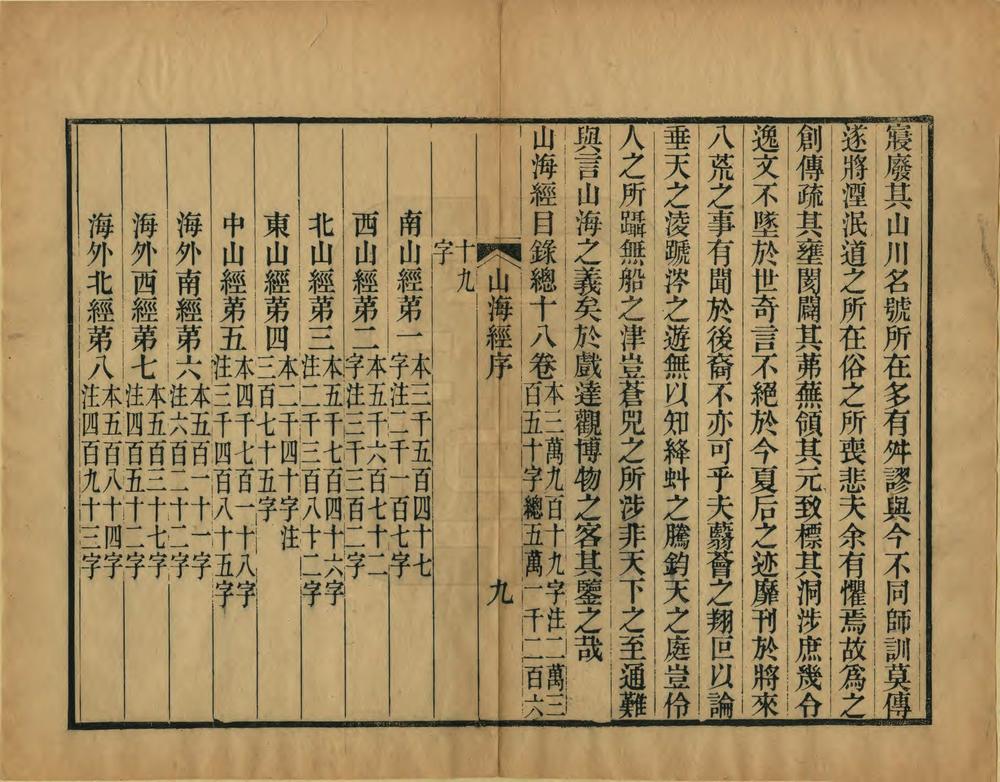 寢廢其山川名號所在多有舛謬與今不同師訓莫傳
遂將湮泯道之所在俗之所喪悲夫余有懼焉故爲之
創傳疏其壅閡闢其茀蕪領其元致標其洞涉庶幾令
逸文不墜於世奇言不絕於今夏后之迹靡刊於將來
八荒之事有聞於後裔不亦可乎夫蘙薈之翔叵以論
垂天之淩蹏涔之遊無以知絳虯之騰鈞天之庭豈伶
人之所躡無船之津豈蒼兕之所涉非天下之至通難
與言山海之義矣於戲達觀博物之客其鑒之哉
山海經目錄總十八卷本三萬九百十九字注二萬三
百五十字總五萬一千二百六
山海經序 九
十九
字
南山經第一本三千五百四十七
字注二千一百七字
西山經第二本五千六百七十二
字注三千三百二字
北山經第三本五千七百四十六字
注二千三百八十二字
東山經第四本二千四十字注
三百七十五字
中山經第五本四千七百一十八字
注三千四百八十五字
海外南經第六本五百一十一字
注六百二十二字
海外西經第七本五百三十七字
注四百五十二字
海外北經第八本五百八十四字
注四百九十三字